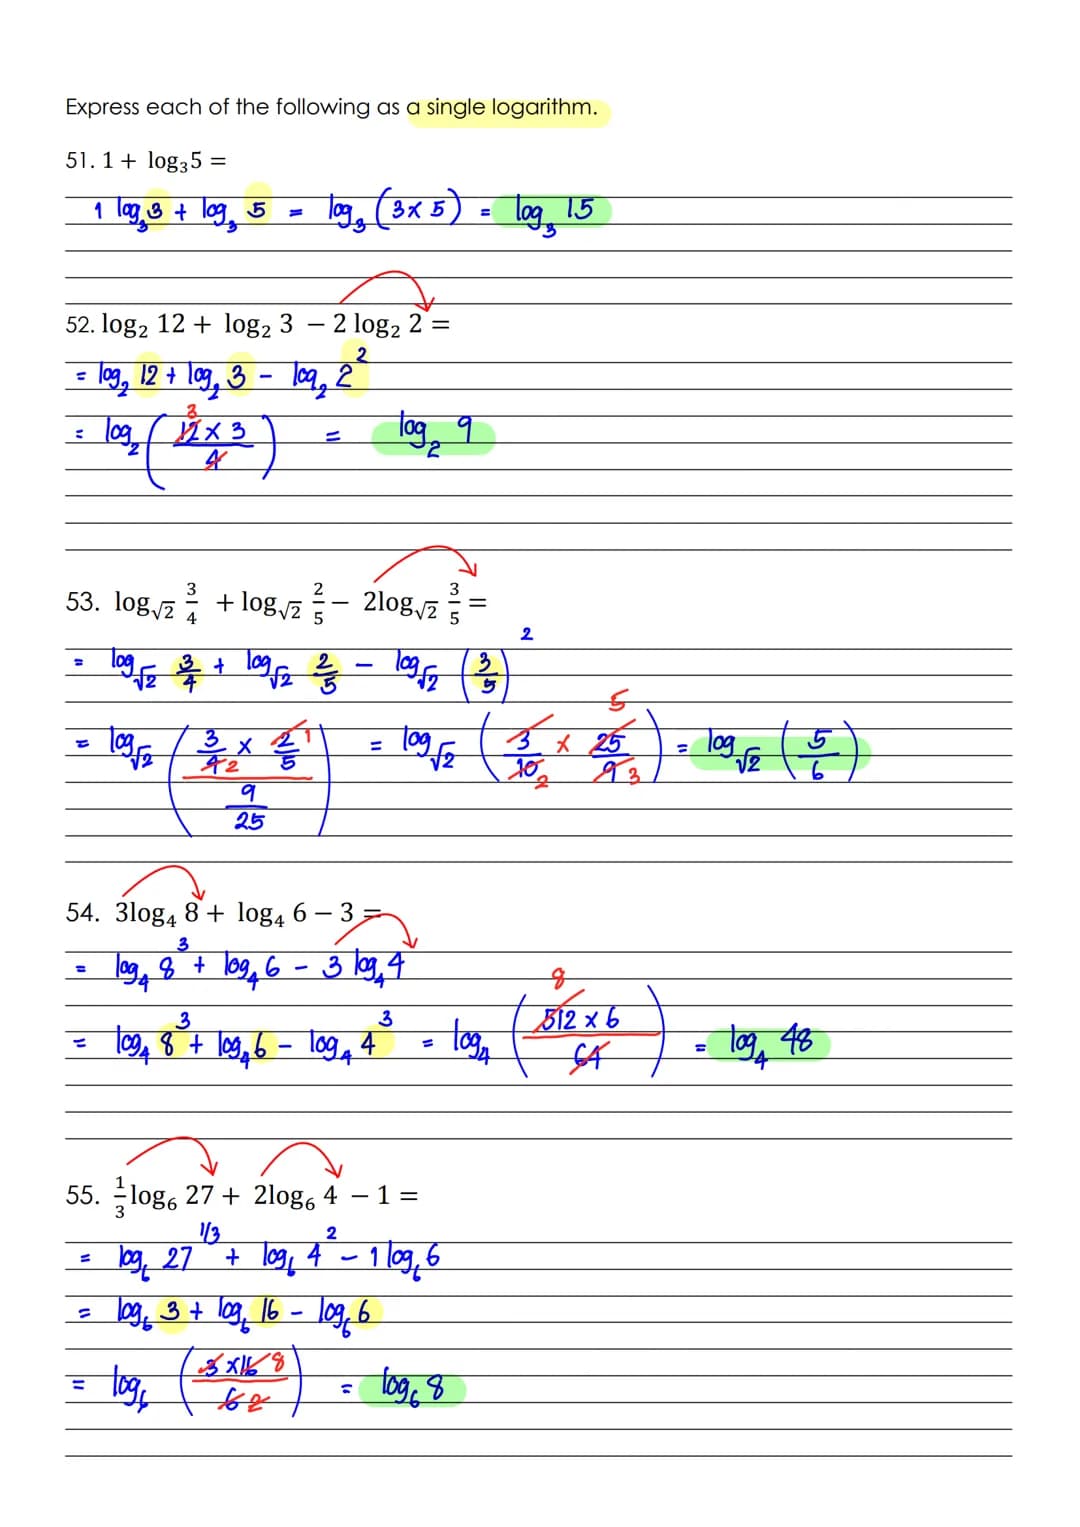 Express each of the following as a single logarithm.
51. 1 + log₃5 =
1 log₃3 + log₃ 5 = log₃ (3 x 5) = log₃ 15
52. log₂ 12 + log₂ 3 − 2 log₂ 2 =
= log₂ 12 + log₂ 3 − log₂ 2²
= log₂ ((12 x 3)/4) 3 = log₂ 9
53. log_√2 3/4 + log_√2 2/5 − 2log_√2 3/5 =
= log_√2 3/4 + log_√2 2/5 − log_√2 (3/5)²
= log_√2 ((3/4 x 2/5)/(9/25)) 2 1 = log_√2 (3/10 x 25/9) 2 5 3 = log_√2 (5/6)
54. 3log₄ 8 + log₄ 6 − 3 =
= log₄ 8³ + log₄ 6 − 3 log₄ 4
= log₄ 8³ + log₄ 6 − log₄ 4³ = log₄ ((512 x 6)/64) 8 = log₄ 48
55. 1/3 log₆ 27 + 2log₆ 4 − 1 =
= log₆ 27^1/3 + log₆ 4² − 1 log₆ 6
= log₆ 3 + log₆ 16 − log₆ 6
= log₆ ((3 x 16)/6) 8 2 = log₆ 8